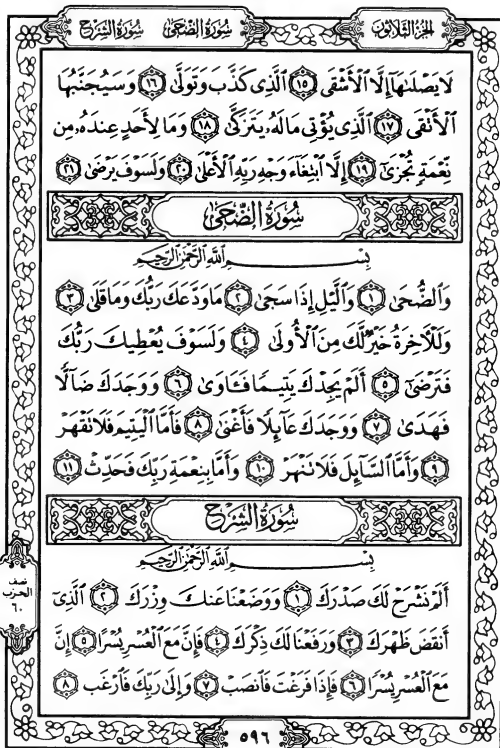 الجزء الثلاثون سورة الضحى سورة الشرح
لَا يَصْلَىٰهَآ إِلَّا ٱلْأَشْقَى ١٥ ٱلَّذِى كَذَّبَ وَتَوَلَّىٰ ١٦ وَسَيُجَنَّبُهَا
ٱلْأَتْقَى ١٧ ٱلَّذِى يُؤْتِى مَالَهُۥ يَتَزَكَّىٰ ١٨ وَمَا لِأَحَدٍ عِندَهُۥ مِن
نِّعْمَةٍ تُجْزَىٰٓ ١٩ إِلَّا ٱبْتِغَآءَ وَجْهِ رَبِّهِ ٱلْأَعْلَىٰ ٢٠ وَلَسَوْفَ يَرْضَىٰ ٢١
سورة الضحى
بِسْمِ ٱللَّهِ ٱلرَّحْمَٰنِ ٱلرَّحِيمِ
وَٱلضُّحَىٰ ١ وَٱلَّيْلِ إِذَا سَجَىٰ ٢ مَا وَدَّعَكَ رَبُّكَ وَمَا قَلَىٰ ٣
وَلَلْءَاخِرَةُ خَيْرٌ لَّكَ مِنَ ٱلْأُولَىٰ ٤ وَلَسَوْفَ يُعْطِيكَ رَبُّكَ
فَتَرْضَىٰٓ ٥ أَلَمْ يَجِدْكَ يَتِيمًا فَـَٔاوَىٰ ٦ وَوَجَدَكَ ضَآلًّا
فَهَدَىٰ ٧ وَوَجَدَكَ عَآئِلًا فَأَغْنَىٰ ٨ فَأَمَّا ٱلْيَتِيمَ فَلَا تَقْهَرْ
٩ وَأَمَّا ٱلسَّآئِلَ فَلَا تَنْهَرْ ١٠ وَأَمَّا بِنِعْمَةِ رَبِّكَ فَحَدِّثْ ١١
سورة الشرح
بِسْمِ ٱللَّهِ ٱلرَّحْمَٰنِ ٱلرَّحِيمِ
أَلَمْ نَشْرَحْ لَكَ صَدْرَكَ ١ وَوَضَعْنَا عَنكَ وِزْرَكَ ٢ ٱلَّذِىٓ
أَنقَضَ ظَهْرَكَ ٣ وَرَفَعْنَا لَكَ ذِكْرَكَ ٤ فَإِنَّ مَعَ ٱلْعُسْرِ يُسْرًا ٥ إِنَّ
مَعَ ٱلْعُسْرِ يُسْرًا ٦ فَإِذَا فَرَغْتَ فَٱنصَبْ ٧ وَإِلَىٰ رَبِّكَ فَٱرْغَب ٨
نصف
الحزب
٦٠
٥٩٦